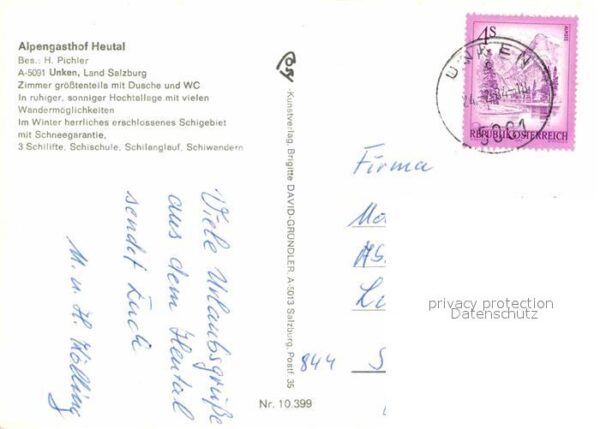 Alpengasthof Heutal
Bes.: H. Pichler
A-5091 Unken, Land Salzburg
Zimmer größtenteils mit Dusche und WC
In ruhiger, sonniger Hochtallage mit vielen
Wandermöglichkeiten
Im Winter herrliches erschlossenes Schigebiet
mit Schneegarantie,
3 Schilifte, Schischule, Schilanglauf, Schiwandern
Viele Urlaubsgrüße
aus dem Heutal
sendet Euch
M. u. H. Kölling
Kunstverlag, Brigitte DAVID-GRÜNDLER, A-5013 Salzburg, Postf. 35
Nr. 10.399
4S
ALMSEE
REPUBLIK ÖSTERREICH
UNKEN
Firma
844
privacy protection
Datenschutz